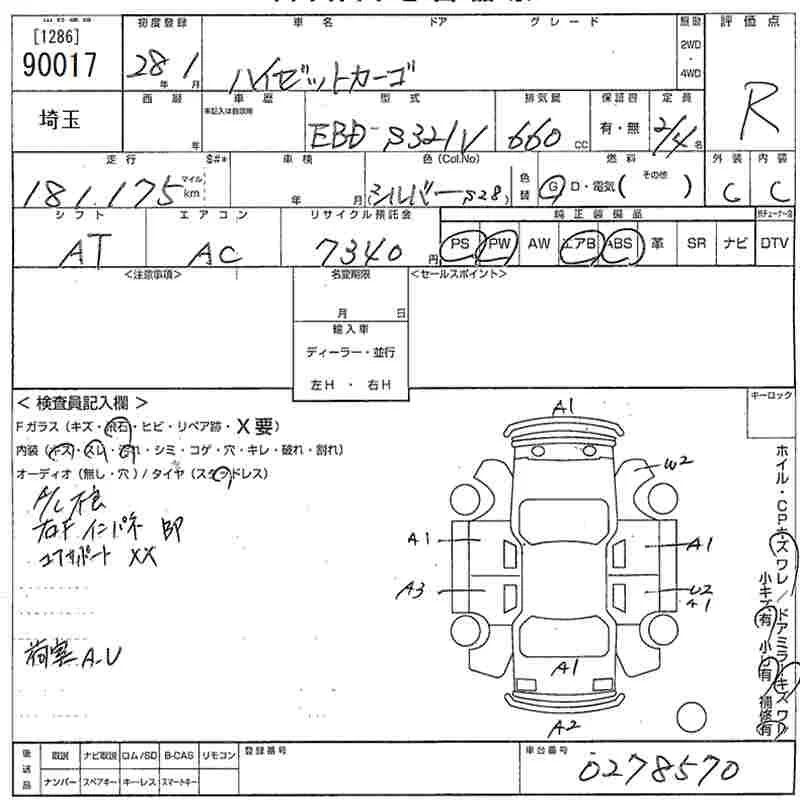 [1286]
90017
初度登録 車名 ドア グレード 駆動 評価点
28年 1月 ハイゼットカーゴ 2WD・4WD R
埼玉
西暦 年 車歴 型式 排気量 保証書 定員
未記入は自家用 EBD-S321V 660 CC 有・無 2/4名
走行 $#* 車検 色(Col.No) 燃料 外装 内装
181,175 マイル km 年 月 シルバー S28 色替 G D・電気 (その他) C C
シフト エアコン リサイクル預託金 純正装備品
AT AC 7340円 PS PW AW エアB ABS 革 SR ナビ DTV
<注意事項> 名変期限 <セールスポイント>
月 日
輸入車
ディーラー・並行
左H ・ 右H
<検査員記入欄> キーロック
Fガラス(キズ・飛石・ヒビ・リペア跡・X要)
内装(キズ・スレ・汚れ・シミ・コゲ・穴・キレ・破れ・割れ)
オーディオ(無し・穴)/タイヤ(スタッドレス)
A/C不良
右F インパネ
コアサポート XX
荷室 A-U
A1
W2
A1 A1
A3 U2
A1
A1
A2
ホイル・CPキズワレ/ドアミラーキズワレ
小キズ有 小凹有 補修有
後送品 取説 ナビ取説 ロム/SD B-CAS リモコン 登録番号 車台番号
ナンバー スペアキー キーレス スマートキー 0278570